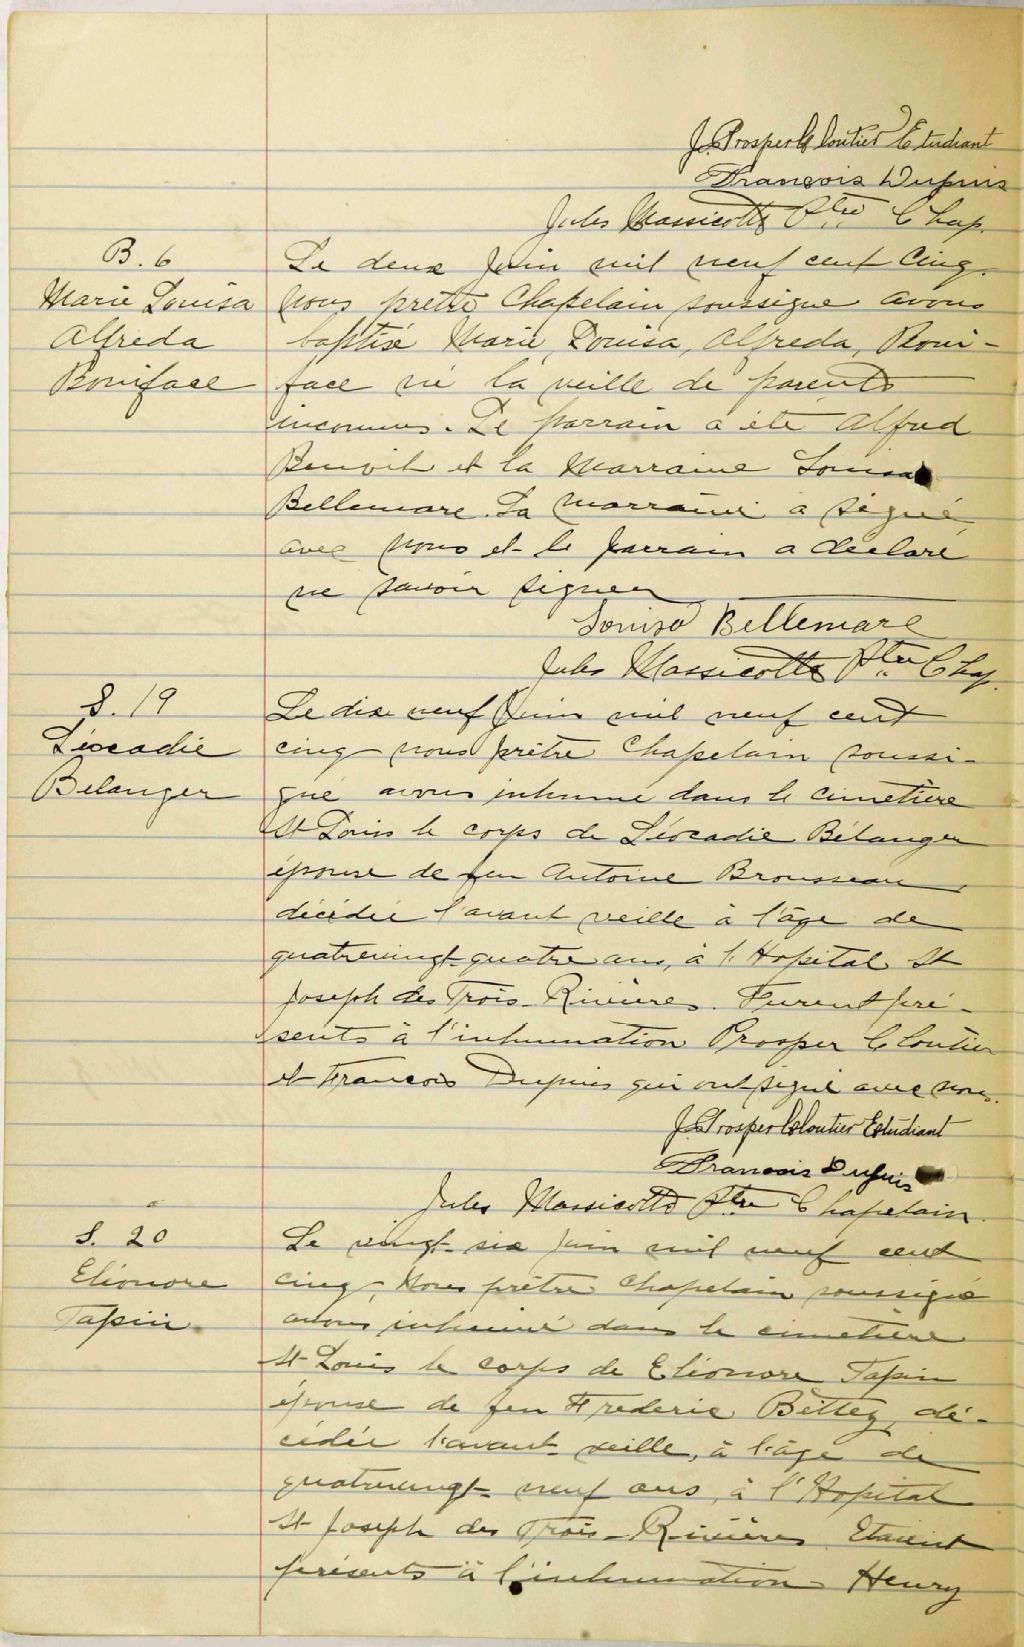 J. Prosper Cloutier Etudiant
François Dupuis
Jules Massicotte Ptre Chap.
B. 6
Marie Louisa
Alfreda
Boniface
Le deux Juin mil neuf cent cinq.
Nous prêtre Chapelain soussigne avons
baptisé Marie, Louisa, Alfreda, Boni-
face né la veille de parents
inconnus. Le parrain a été Alfred
Benoit et la Marraine Louisa
Bellemare. La marraine a signé
avec nous et le parrain a déclaré
ne savoir signer
Louisa Bellemare
Jules Massicotte Ptre Chap.
S. 19
Léocadie
Belanger
Le dix neuf Juin mil neuf cent
cinq nous prêtre Chapelain soussi-
gné avons inhumé dans le cimetière
St Louis le corps de Léocadie Bélanger
épouse de feu Antoine Brousseau,
décédée l'avant veille à l'âge de
quatrevingt-quatre ans, à l'Hopital St
Joseph des Trois-Rivières. Furent pré-
sents à l'inhumation Prosper Cloutier
et Francois Dupuis qui ont signé avec nous.
J. Prosper Cloutier Estudiant
Francois Dupuis
Jules Massicotte Ptre Chapelain.
S. 20
Eléonore
Tapin
Le vingt-six Juin mil neuf cent
cinq, Nous prêtre Chapelain soussigné
avons inhumé dans le cimetière
St Louis le corps de Eléonore Tapin
épouse de feu Frederic Bettez, dé-
cédée l'avant-veille, à l'âge de
quatrevingt-neuf ans, à l'Hopital
St Joseph des Trois-Rivières. Etaient
présents à l'inhumation Henry